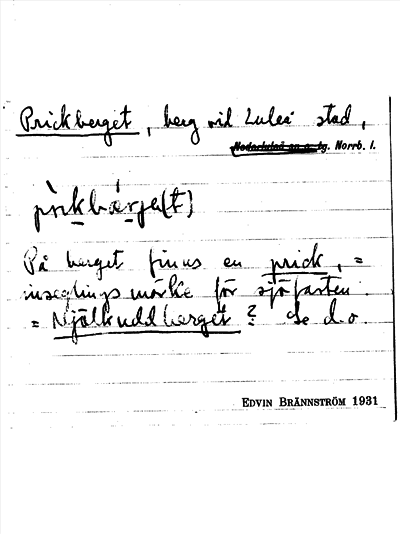 Prickberget, berg vid Luleå stad,
Nederluleå sn o. tg. Norrb. l.
prìkbǽrje(t)
På berget finns en prick, =
inseglingsmärke för sjöfarten.
= Mjölkuddberget? Se d. o.
EDVIN BRÄNNSTRÖM 1931